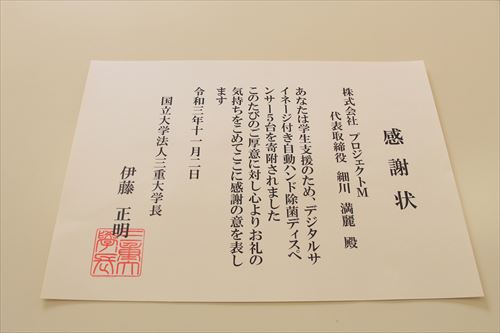 感謝状
株式会社 プロジェクトM
代表取締役 細川 満麗 殿
あなたは学生支援のため、デジタルサ
イネージ付き自動ハンド除菌ディスペ
ンサー5台を寄附されました
このたびのご厚意に対し心よりお礼の
気持ちをこめてここに感謝の意を表し
ます
令和三年十一月二日
国立大学法人三重大学長
伊藤 正明
三重大
学長